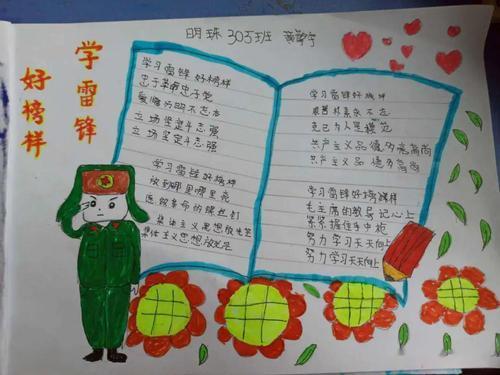 明珠305班
学雷锋
好榜样
学习雷锋好榜样
忠于革命忠于党
爱憎分明不忘本
立场坚定斗志强
立场坚定斗志强
学习雷锋好榜样
放到哪里哪里亮
愿做革命的螺丝钉
集体主义思想放光芒
集体主义思想放光芒
学习雷锋好榜样
艰苦朴素永不忘
克己为人是模范
共产主义品德多高尚
共产主义品德多高尚
学习雷锋好榜样
毛主席的教导记心上
紧紧握住手中枪
努力学习天天向上
努力学习天天向上